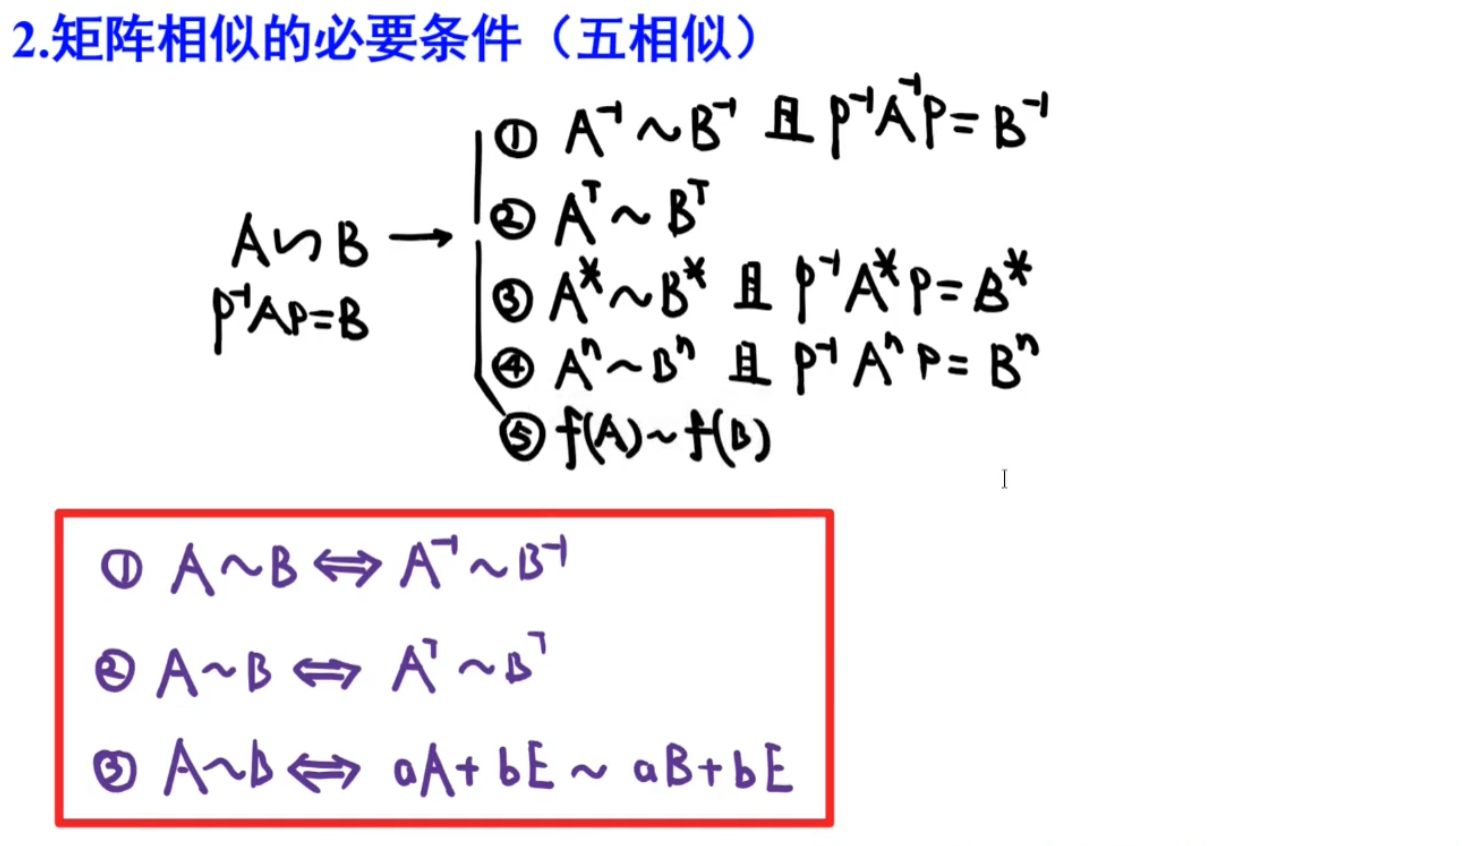 2.矩阵相似的必要条件（五相似）
① A⁻¹~B⁻¹ 且 P⁻¹A⁻¹P=B⁻¹
② Aᵀ~Bᵀ
A∽B →
③ A*~B* 且 P⁻¹A*P=B*
P⁻¹AP=B
④ Aⁿ~Bⁿ 且 P⁻¹AⁿP=Bⁿ
⑤ f(A)~f(B)
① A~B⇔A⁻¹~B⁻¹
② A~B⇔Aᵀ~Bᵀ
③ A~B⇔aA+bE~aB+bE